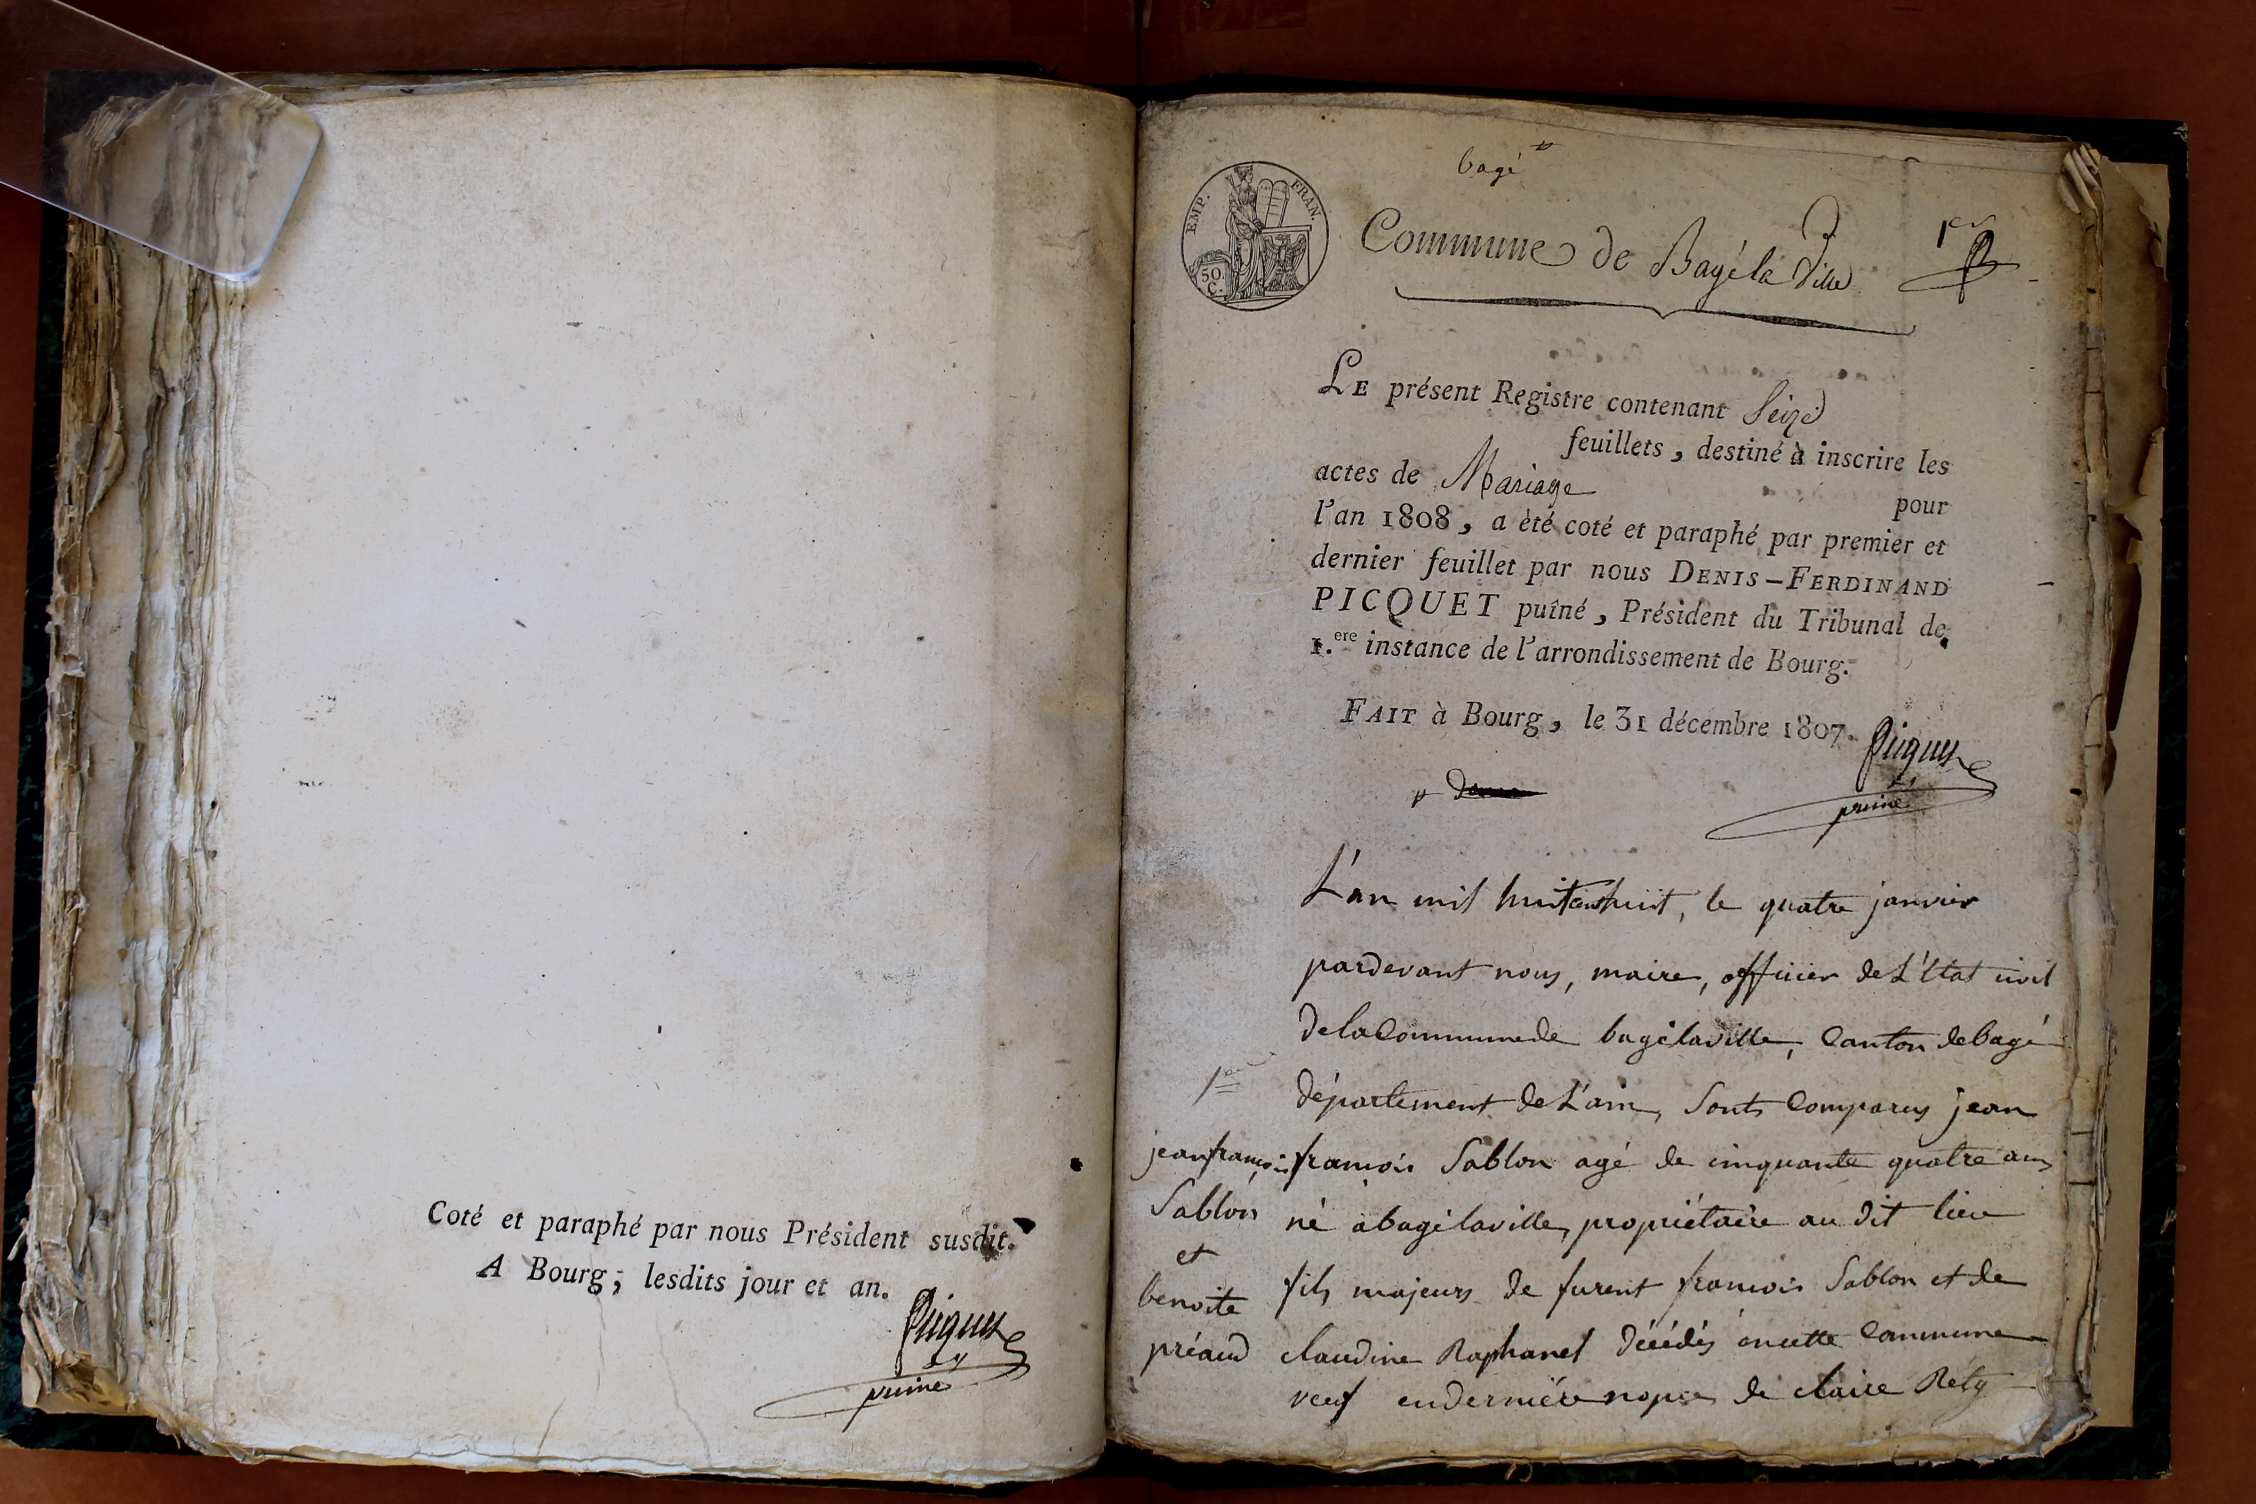 Coté et paraphé par nous Président susdit.
A Bourg, lesdits jour et an.
Picquet
puiné
bagé
EMP. FRAN.
50.
C.
Commune de Bagé la Ville
1er
LE présent Registre contenant Seize
feuillets, destiné à inscrire les
actes de Mariage pour
l'an 1808, a été coté et paraphé par premier et
dernier feuillet par nous DENIS-FERDINAND
PICQUET puîné, Président du Tribunal de
1.ere instance de l'arrondissement de Bourg.
FAIT à Bourg, le 31 décembre 1807.
Picquet
puiné
L'an mil huit cent huit, le quatre janvier
pardevant nous, maire, officier de L'Etat civil
de la Commune de bagé la ville, Canton de bagé
département de L'ain, Sont Comparus jean
françois Sablon agé de cinquante quatre ans
né à bagé la ville, propriétaire au dit lieu
fils majeurs de furent françois Sablon et de
claudine Raphanel décédés en cette Commune
veuf en dernière nopce de claire Réty
1er
jean françois
Sablon
et
benoite
préaud